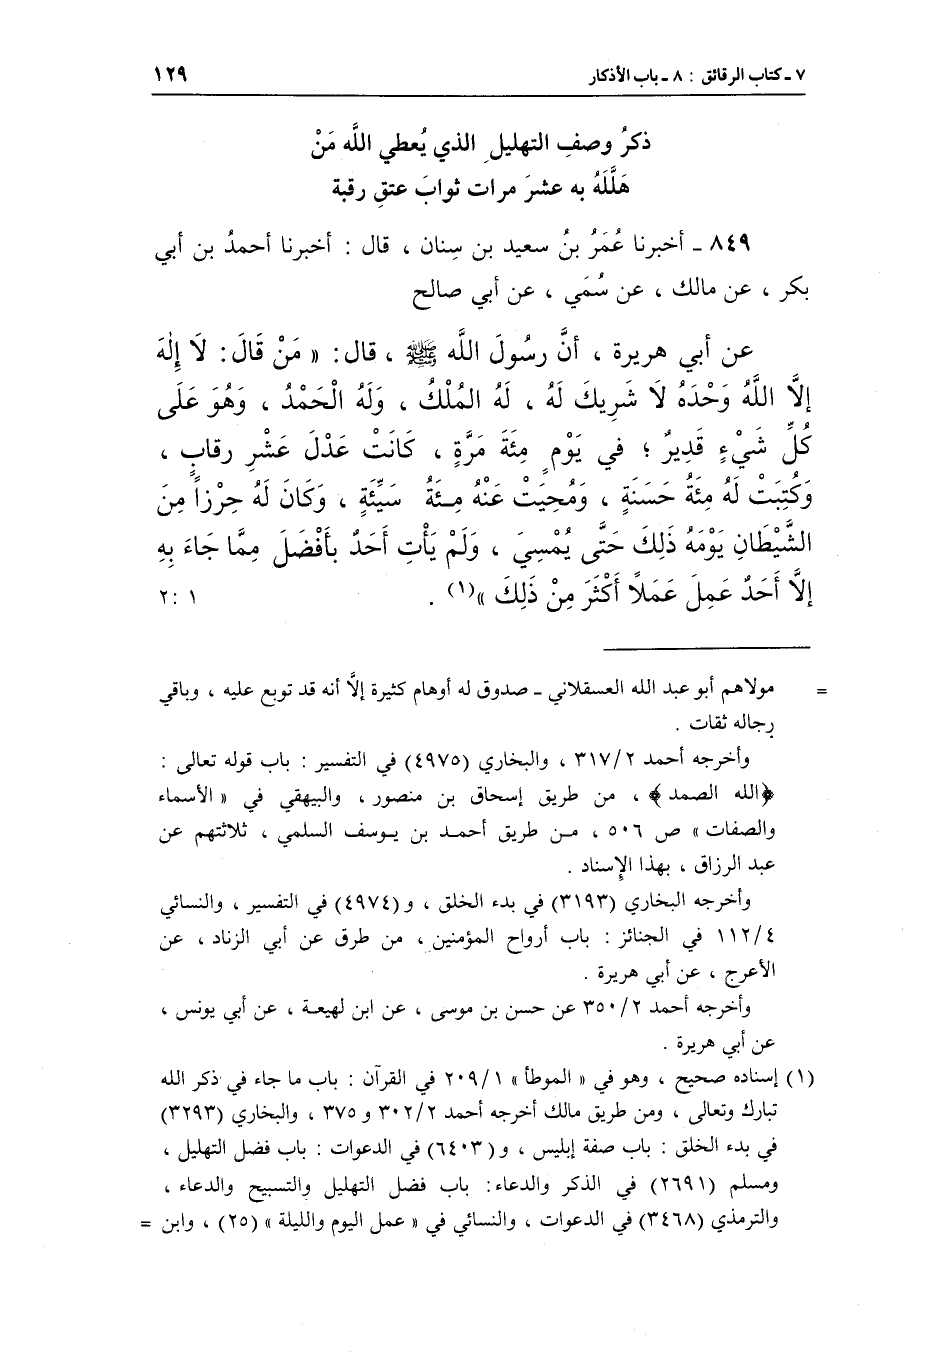 ٧ ـ كتاب الرقائق : ٨ ـ باب الأذكار ١٢٩
ذكرُ وصفِ التهليلِ الذي يُعطي اللَّه مَنْ
هَلَّلَهُ به عشرَ مرات ثوابَ عتقِ رقبة
٨٤٩ ـ أخبرنا عُمَرُ بنُ سعيد بن سِنان ، قال : أخبرنا أحمدُ بن أبي
بكر ، عن مالك ، عن سُمَي ، عن أبي صالح
عن أبي هريرة ، أنَّ رسُولَ اللَّه ﷺ ، قال: « مَنْ قَالَ: لَا إِلٰهَ
إلَّا اللَّهُ وَحْدَهُ لَا شَرِيكَ لَهُ ، لَهُ المُلْكُ ، وَلَهُ الْحَمْدُ ، وَهُوَ عَلَى
كُلِّ شَيْءٍ قَدِيرٌ ؛ في يَوْمٍ مِئَةَ مَرَّةٍ ، كَانَتْ عَدْلَ عَشْرِ رقابٍ ،
وَكُتِبَتْ لَهُ مِئَةُ حَسَنَةٍ ، وَمُحِيَتْ عَنْهُ مِـئَةُ سَيِّئَةٍ ، وَكَانَ لَهُ حِرْزاً مِنَ
الشَّيْطَانِ يَوْمَهُ ذَلِكَ حَتَّى يُمْسِيَ ، وَلَمْ يَأْتِ أَحَدٌ بأَفْضَلَ مِمَّا جَاءَ بِهِ
إلَّا أَحَدٌ عَمِلَ عَمَلاً أَكْثَرَ مِنْ ذَلِكَ »(١) . ١ : ٢
= مولاهم أبو عبد الله العسقلاني ـ صدوق له أوهام كثيرة إلَّا أنه قد توبع عليه ، وباقي
رجاله ثقات .
وأخرجه أحمد ٣١٧/٢ ، والبخاري (٤٩٧٥) في التفسير : باب قوله تعالى :
﴿الله الصمد﴾ ، من طريق إسحاق بن منصور ، والبيهقي في « الأسماء
والصفات » ص ٥٠٦ ، مـن طريق أحمـد بن يـوسف السلمي ، ثلاثتهم عن
عبد الرزاق ، بهذا الإسناد .
وأخرجه البخاري (٣١٩٣) في بدء الخلق ، و(٤٩٧٤) في التفسير ، والنسائي
١١٢/٤ في الجنائز : باب أرواح المؤمنين ، من طرق عن أبي الزناد ، عن
الأعرج ، عن أبي هريرة .
وأخرجه أحمد ٣٥٠/٢ عن حسن بن موسى ، عن ابن لهيعـة ، عن أبي يونس ،
عن أبي هريرة .
(١) إسناده صحيح ، وهو في « الموطأ » ٢٠٩/١ في القرآن : باب ما جاء في ذكر الله
تبارك وتعالى ، ومن طريق مالك أخرجه أحمد ٣٠٢/٢ و ٣٧٥ ، والبخاري (٣٢٩٣)
في بدء الخلق : باب صفة إبليس ، و(٦٤٠٣) في الدعوات : باب فضل التهليل ،
ومسلم (٢٦٩١) في الذكر والدعاء: باب فضل التهليل والتسبيح والدعاء ،
والترمذي (٣٤٦٨) في الدعوات ، والنسائي في « عمل اليوم والليلة » (٢٥) ، وابن =